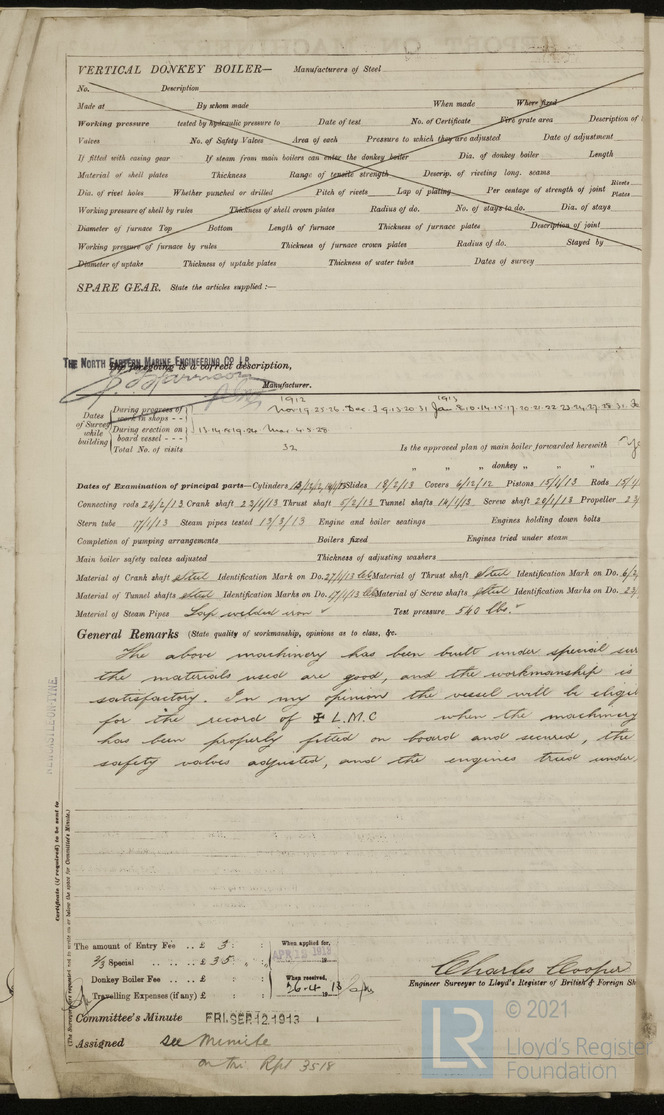 VERTICAL DONKEY BOILER— Manufacturers of Steel
No. Description
Made at By whom made When made Where fixed
Working pressure tested by hydraulic pressure to Date of test No. of Certificate Fire grate area Description of
Valves No. of Safety Valves Area of each Pressure to which they are adjusted Date of adjustment
If fitted with easing gear If steam from main boilers can enter the donkey boiler Dia. of donkey boiler Length
Material of shell plates Thickness Range of tensile strength Descrip. of riveting long. seams
Dia. of rivet holes Whether punched or drilled Pitch of rivets Lap of plating Per centage of strength of joint Rivets Plates
Working pressure of shell by rules Thickness of shell crown plates Radius of do. No. of stays to do. Dia. of stays
Diameter of furnace Top Bottom Length of furnace Thickness of furnace plates Description of joint
Working pressure of furnace by rules Thickness of furnace crown plates Radius of do. Stayed by
Diameter of uptake Thickness of uptake plates Thickness of water tubes Dates of survey
SPARE GEAR. State the articles supplied:—
THE NORTH EASTERN MARINE ENGINEERING CO. LD.
The foregoing is a correct description,
Manufacturer.
1912 1913
Dates of Survey while building
During progress of work in shops - - Nov. 19. 25. 26. Dec. 3. 9. 13. 20. 31 Jan. 8. 10. 14. 15. 17. 20. 21. 22. 23. 24. 27. 28. 31.
During erection on board vessel - - - Mar. 4. 5. 28.
Total No. of visits 32 Is the approved plan of main boiler forwarded herewith
" " " donkey " " "
Dates of Examination of principal parts—Cylinders Slides 18/2/13 Covers 6/12/12 Pistons 15/1/13 Rods 15/1
Connecting rods 24/2/13 Crank shaft 27/1/13 Thrust shaft 5/2/13 Tunnel shafts 14/1/13 Screw shaft 20/1/13 Propeller
Stern tube 17/1/13 Steam pipes tested 13/3/13 Engine and boiler seatings Engines holding down bolts
Completion of pumping arrangements Boilers fixed Engines tried under steam
Main boiler safety valves adjusted Thickness of adjusting washers
Material of Crank shaft Steel Identification Mark on Do. 27/1/13 Material of Thrust shaft Steel Identification Mark on Do. 6/2
Material of Tunnel shafts Steel Identification Marks on Do. 17/1/13 Material of Screw shafts Steel Identification Marks on Do.
Material of Steam Pipes Lap welded iron ✓ Test pressure 540 lbs. ✓
General Remarks (State quality of workmanship, opinions as to class, &c.
The above machinery has been built under special sur
the materials used are good, and the workmanship is
satisfactory. In my opinion the vessel will be eligi
for the record of ✠ L.M.C when the machinery
has been properly fitted on board and secured, the
safety valves adjusted, and the engines tried under
NEWCASTLE-ON-TYNE.
Certificate (if required) to be sent to
(The Surveyors are requested not to write on or below the space for Committee's Minute.)
The amount of Entry Fee .. £ 3 : : When applied for,
2/3 Special .. .. .. £ 35 : : APR 1913
Donkey Boiler Fee .. £ : : When received,
Travelling Expenses (if any) £ : : 26.4.13
Charles Cooper
Engineer Surveyor to Lloyd's Register of British & Foreign Sh
Committee's Minute FRI. SEP. 12. 1913
Assigned see minute
on the Rpt 3518
© 2021
Lloyd's Register
Foundation
LR